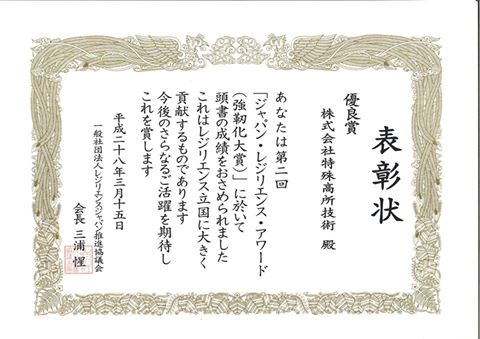 表彰状
優良賞
株式会社特殊高所技術 殿
あなたは第二回
「ジャパン・レジリエンス・アワード
(強靭化大賞)」に於いて
頭書の成績をおさめられました
これはレジリエンス立国に大きく
貢献するものであります
今後のさらなるご活躍を期待し
これを賞します
平成二十八年三月十五日
一般社団法人レジリエンスジャパン推進協議会
会長 三浦 惺